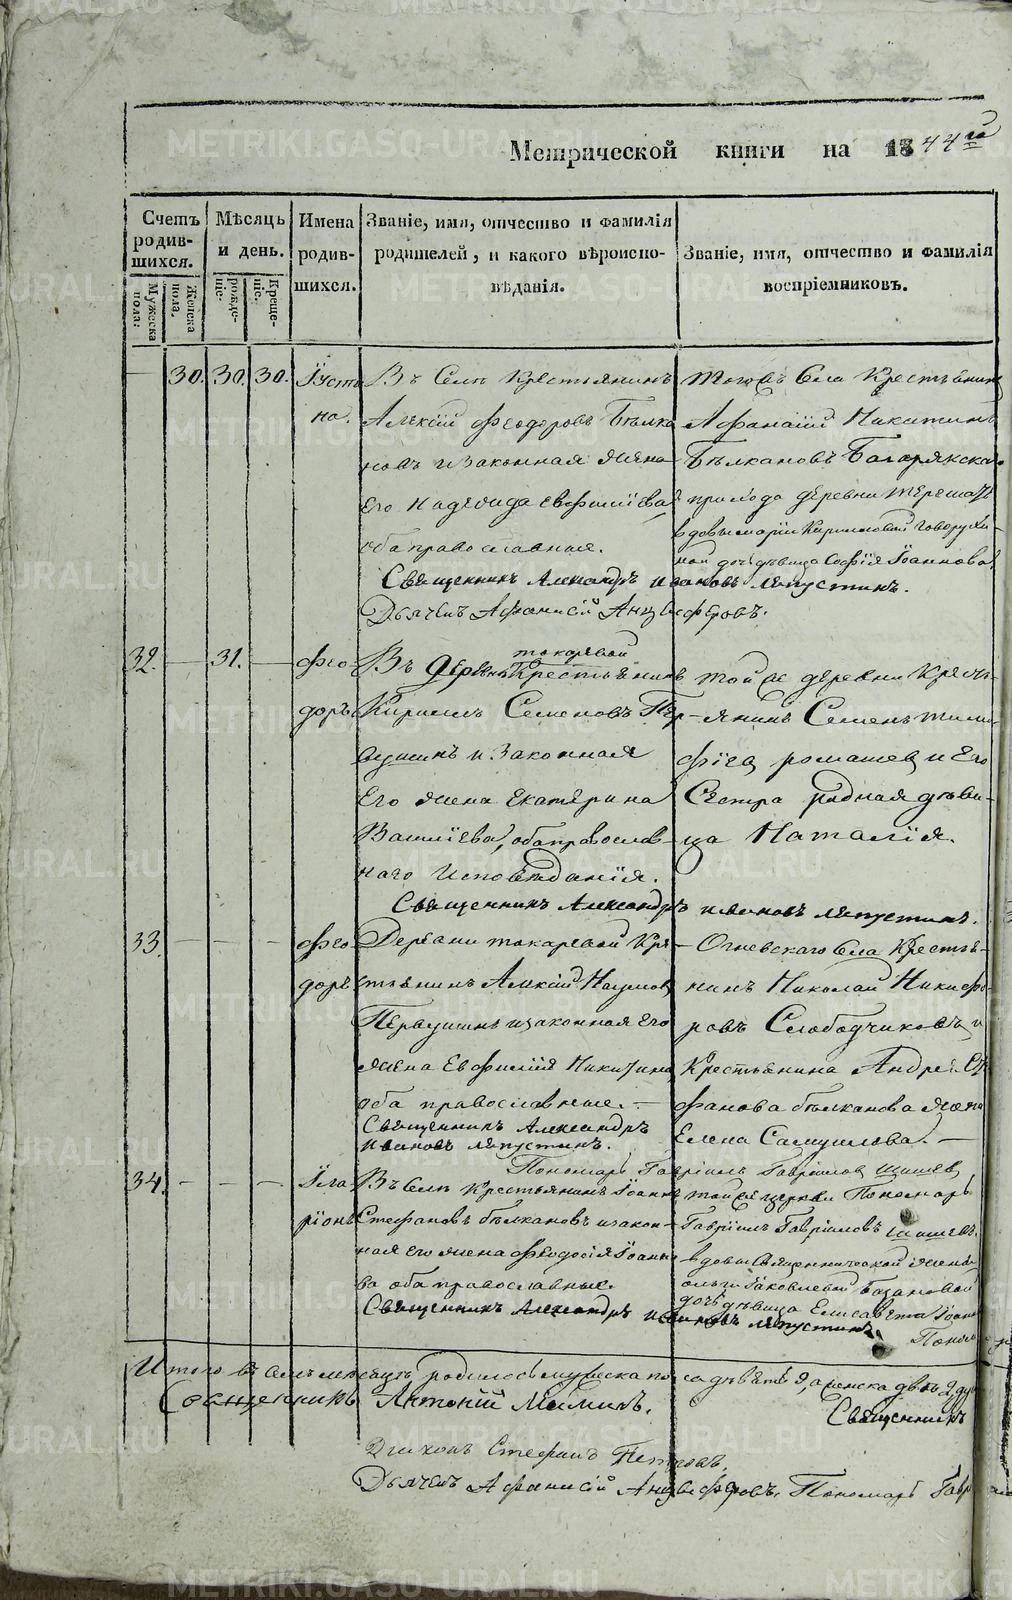 Метрической книги на 1844го
Счетъ родившихся.
Мужеска пола:
Женска пола.
Мѣсяцъ и день.
рожденіе:
Крещеніе:
Имена родившихся.
Званіе, имя, отчество и фамилія родителей, и какого вѣроисповѣданія.
Званіе, имя, отчество и фамилія воспріемниковъ.
30. 30. 30. Їустина.
Въ Селѣ Крестьянинъ
Алексій Феодоровъ Бѣлка
новъ и законная жена
Его Надежда Евфиміева,
оба православная.
Священникъ Александръ Ивановъ Лепустинъ.
Дьячекъ Афанасій Анциферовъ.
тогожъ Села Крестьянинъ
Афанасій Никитинъ
Бѣлкановъ Багарякскаго
прихода деревни
вдовы Маріи Кириловой Говорухи
ной дочь дѣвица Софія Іоаннова.
32. 31. Феодоръ
Въ Деревнѣ Токаревой Крестьянинъ
Кирилъ Семеновъ Пер
вушинъ и Законная
Его жена Екатерина
Василіева, оба православ
наго Исповѣданія.
Священникъ Александръ Ивановъ Лепустинъ.
той же деревни Кресть
янинъ Семенъ Тимо
фіев Ромашев и Его
Сестра родная дѣви
ца Наталія.
33. Феодоръ
Деревни Токаревой Кре
стьянинъ Алексій Наумов
Первушинъ и законная Его
жена Евфимія Никитина
оба православные.
Священникъ Александръ
Ивановъ Лепустинъ.
Огневскаго Села Крестья
нинъ Николай Никифо
ровъ Слободчиковъ и
Крестьянина Андрея Сте
фанова Бѣлканова жена
Елена Самуилова.
Пономарь Гавріилъ Гавріилов Шишев
34. Їларіонъ
Въ Селѣ Крестьянинъ Іоаннъ
Стефановъ Бѣлкановъ и закон
ная Его жена Феодосія Іоанно
ва оба православные.
Священникъ Александръ Ивановъ Лепустинъ.
той же церкви Пономарь
Гавріилъ Гавріиловъ Шишевъ
вдовы Священнической жены
Ольги Яковлевой Базановой
дочь дѣвица Елисавета Іоанн
Поном
Итого въ семъ месяцѣ родилось мужеска пола девять 9, а женска двѣ 2,
Священникъ Антоній Мамин.
Священникъ
Диаконъ Стефанъ Петровъ.
Дьячекъ Афанасій Анциферовъ. Пономарь Гавр